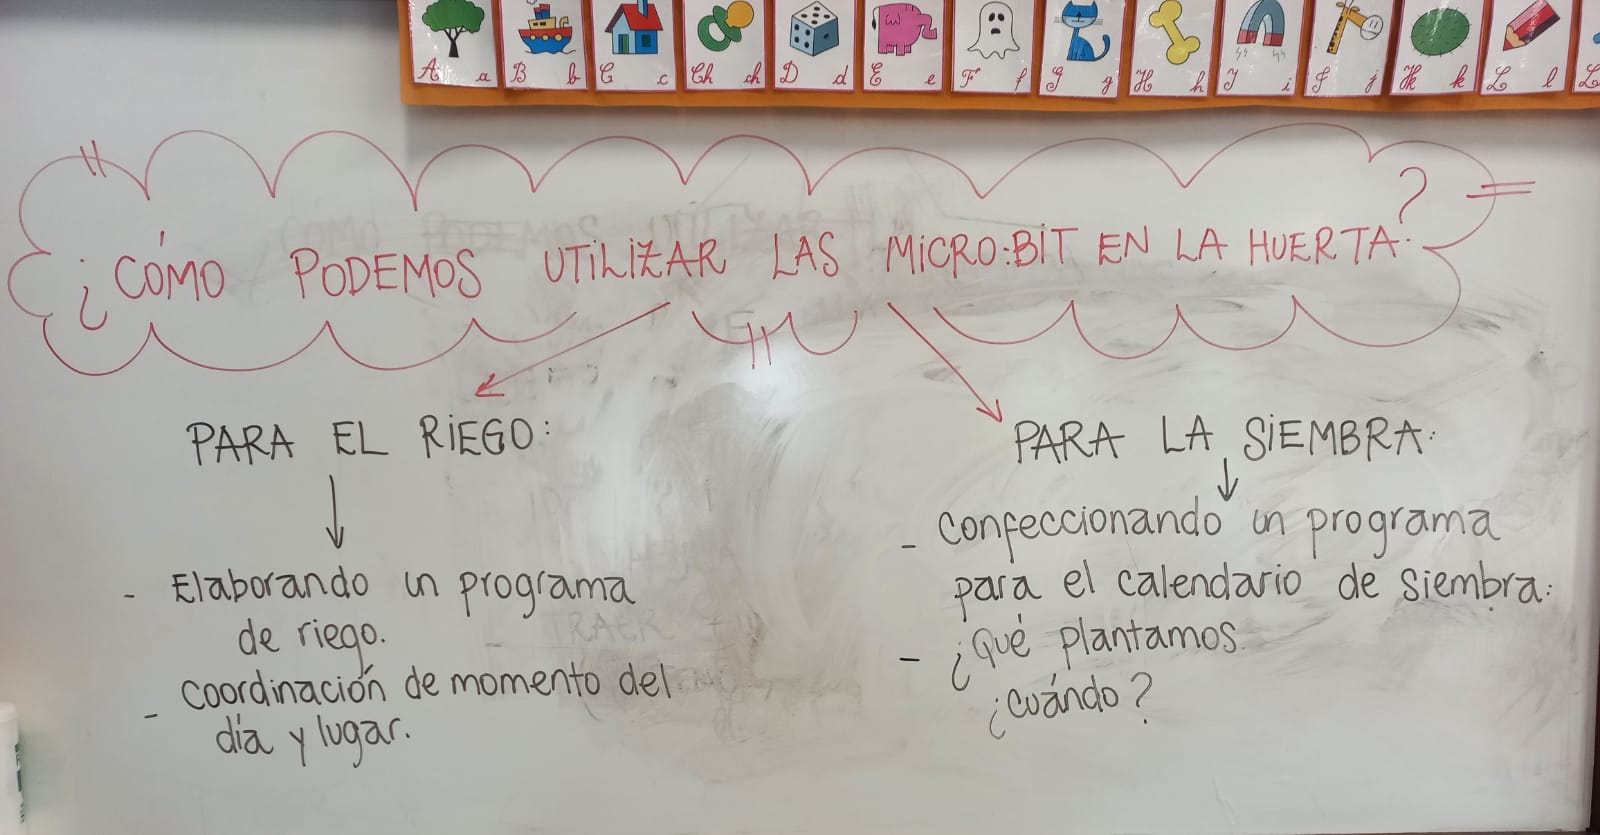 A a B b C c Ch ch D d E e F f G g H h I i J j K k L l
¿CÓMO PODEMOS UTILIZAR LAS MICRO:BIT EN LA HUERTA?
PARA EL RIEGO:
- Elaborando un programa
de riego.
- Coordinación de momento del
día y lugar.
PARA LA SIEMBRA:
- Confeccionando un programa
para el calendario de siembra:
- ¿Qué plantamos
¿cuándo?